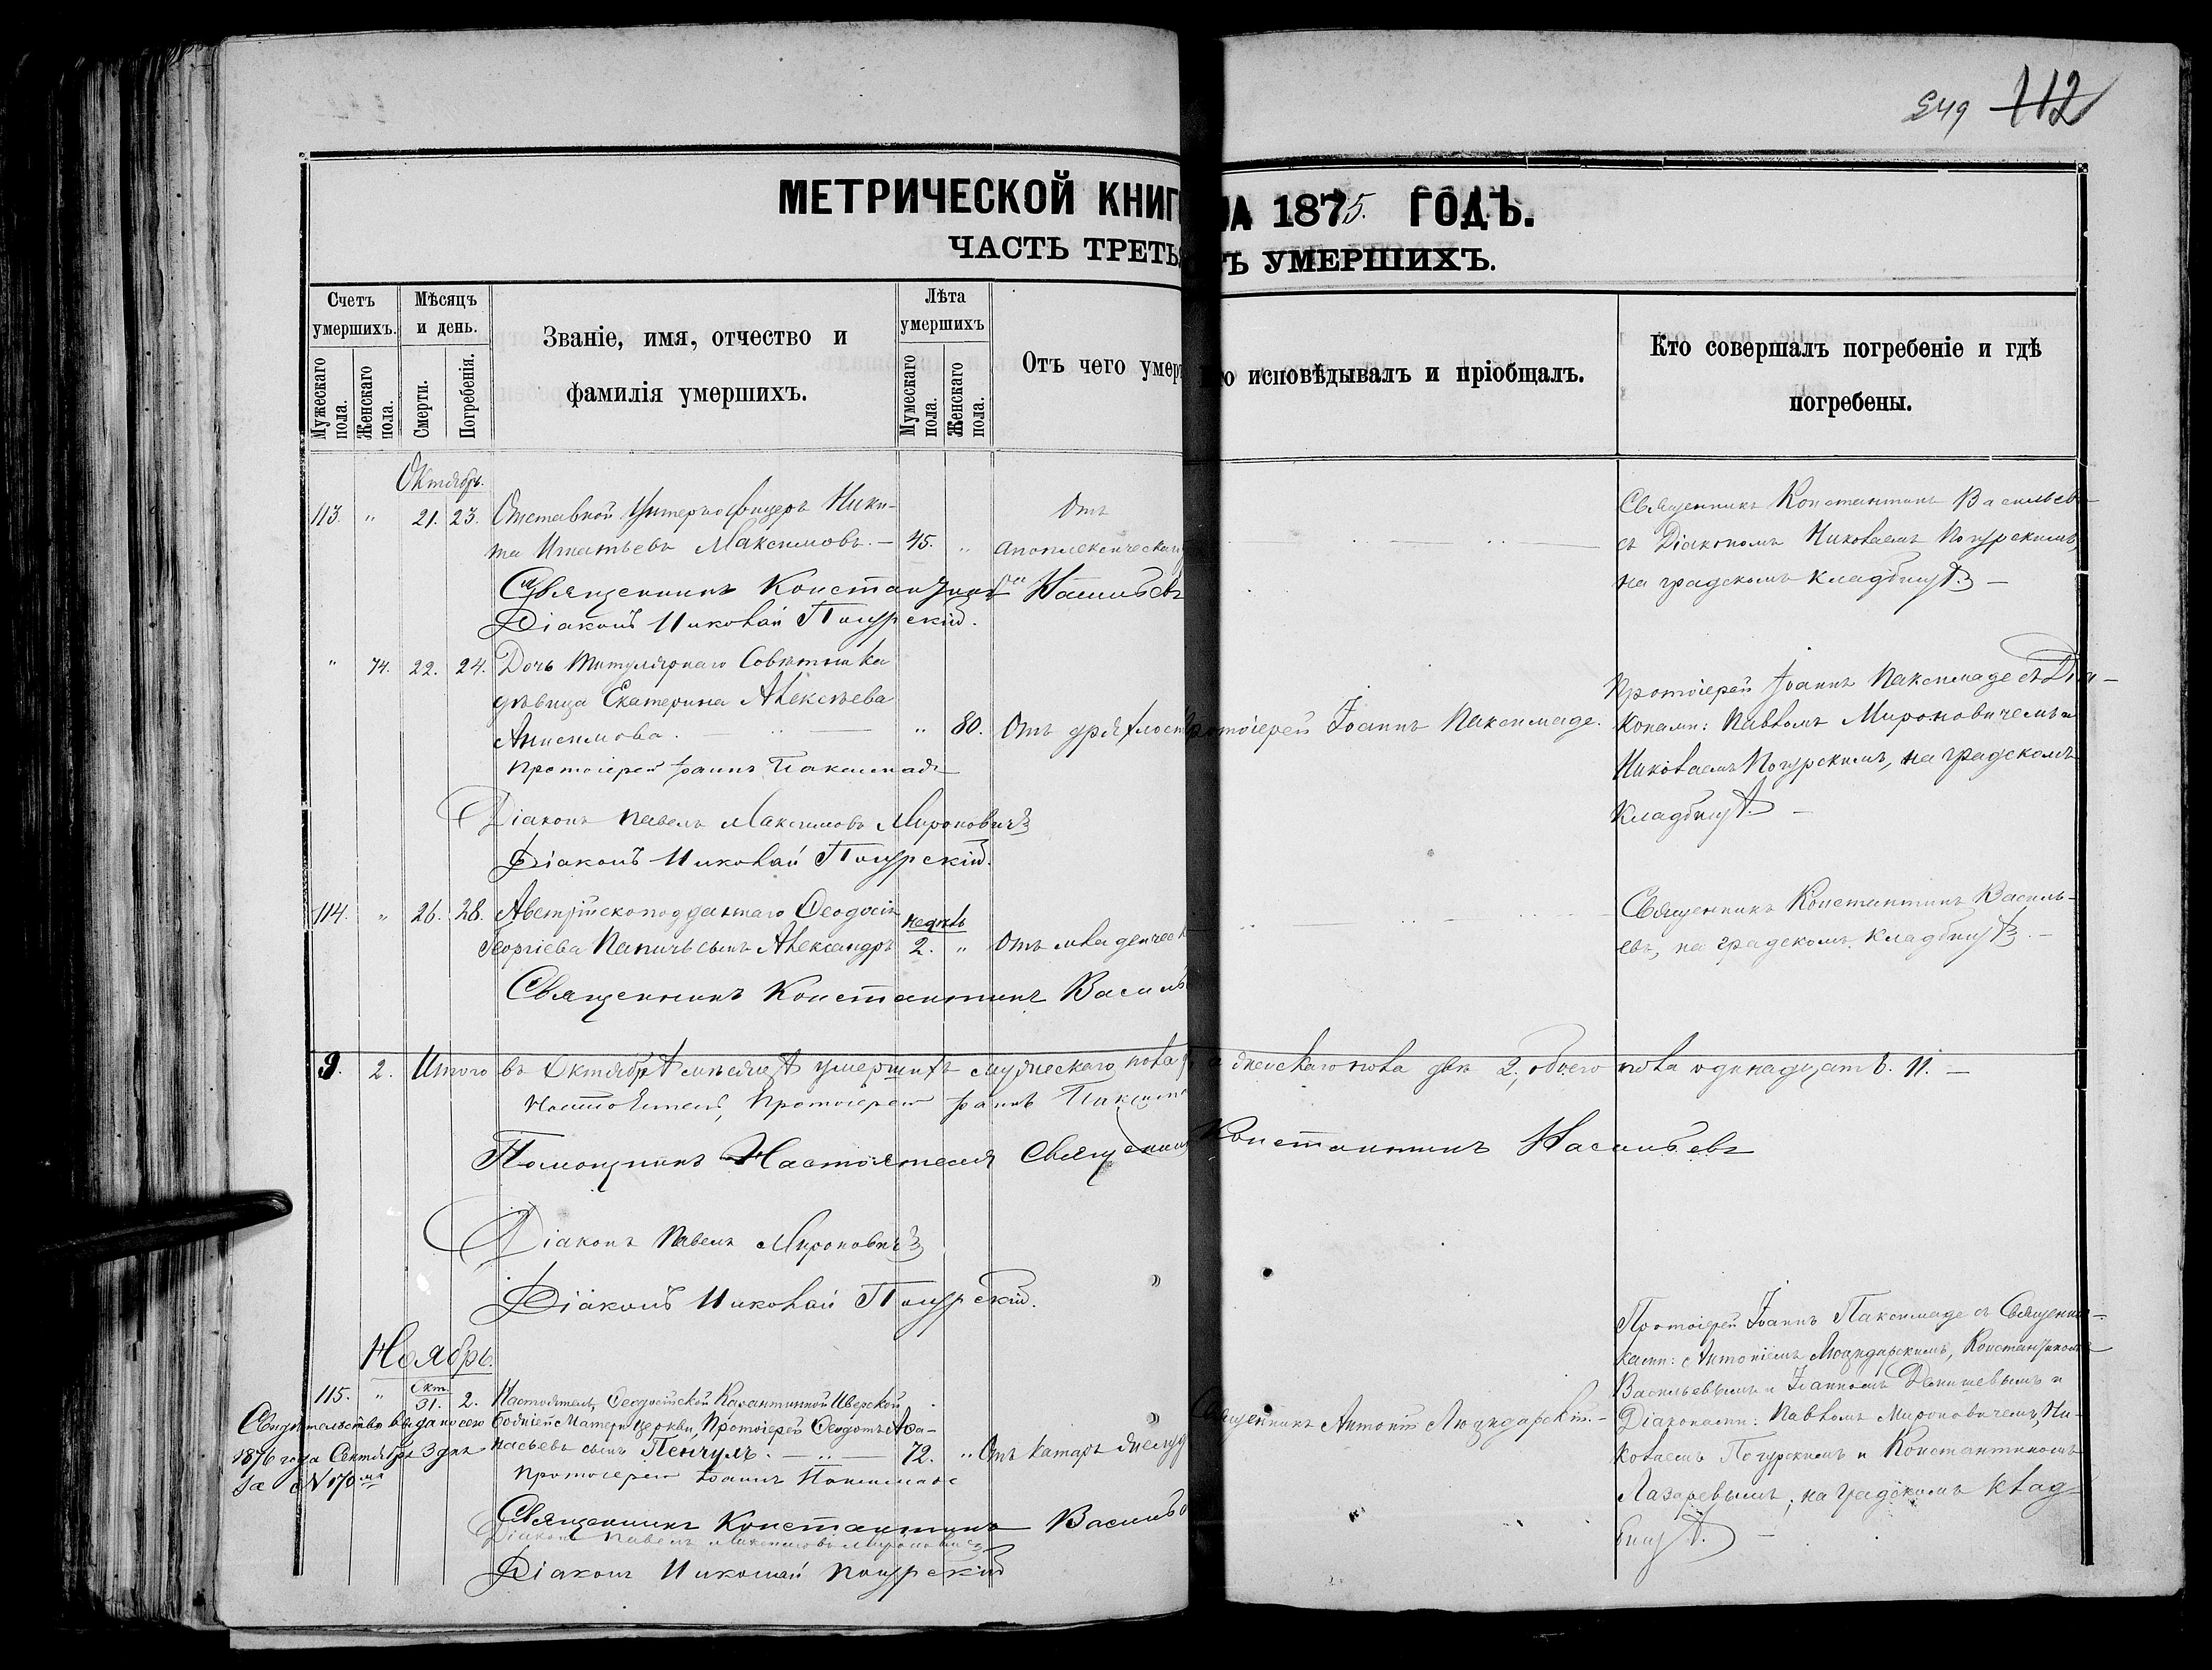 549 112
МЕТРИЧЕСКОЙ КНИГ НА 1875. ГОДЪ.
ЧАСТЬ ТРЕТЬ Ъ УМЕРШИХЪ.
Счетъ умершихъ.
Мужескаго пола.
Женскаго пола.
Мѣсяцъ и день.
Смерти.
Погребенія.
Званіе, имя, отчество и
фамилія умершихъ.
Лѣта умершихъ
Мужескаго пола.
Женскаго пола.
Отъ чего умер
о исповѣдывалъ и пріобщалъ.
Кто совершалъ погребеніе и гдѣ
погребены.
Октябрь.
113. " 21. 23. Отставной Унтеръ-офицеръ Ники-
та Игнатьевъ Максимовъ. — 45. "
Отъ
апоплексическаго
Священникъ Константинъ Васильев
съ Діакономъ Николаемъ Погурскимъ,
на градскомъ кладбищѣ —
Священникъ Константинъ Васильевъ
Діаконъ Николай Погурскій.
" 74. 22. 24. Дочь Титулярнаго Совѣтника
дѣвица Екатерина Алексѣева
Анисимова. — " 80. Отъ дряхлост
Протоіерей Іоаннъ Паксимаде.
Протоіерей Іоаннъ Паксимаде съ Діа-
конами: Павломъ Мироновичемъ и
Николаемъ Погурскимъ, на градскомъ
кладбищѣ. —
Протоіерей Іоаннъ Паксимаде
Діаконъ Павелъ Максимовъ Мироновичъ
Діаконъ Николай Погурскій.
114. " 26. 28. Австрійскоподданнаго Ѳеодосія
Георгіева Папичъ сынъ Александръ
недѣль
2. " Отъ младенчес
Священникъ Константинъ Василь-
евъ, на градскомъ кладбищѣ. —
Священникъ Константинъ Василь
9. 2. Итого въ Октябрѣ мѣсяцѣ умершихъ мужескаго пола женскаго пола двѣ 2, обоего пола одинадцать. 11. —
Настоятель, Протоіерей Іоаннъ Паксим
Помощникъ Настоятеля Священникъ Константинъ Васильевъ
Діаконъ Павелъ Мироновичъ
Діаконъ Николай Погурскій.
Ноябрь.
115. " Окт. 31. 2. Настоятель Ѳеодосійской Карантинной Иверской
Божіей Матери церкви, Протоіерей Ѳеодотъ Аѳа-
насьевъ сынъ Пенчулъ. — 72. " Отъ катара желуд
Свидѣтельство выдано сего
1876 года Сентября 3 дня
за №170
Священникъ Антоній Люцидарскій. —
Протоіерей Іоаннъ Паксимаде съ Священни-
ками: Антоніемъ Люцидарскимъ, Константиномъ
Васильевымъ и Іоанномъ и
Діаконами: Павломъ Мироновичемъ, Ни-
колаемъ Погурскимъ и Константиномъ
Лазаревымъ; на градскомъ клад-
бищѣ. —
Протоіерей Іоаннъ Паксимаде
Священникъ Константинъ Василь
Діаконъ Павелъ Максимовъ Мироновичъ
Діаконъ Николай Погурскій